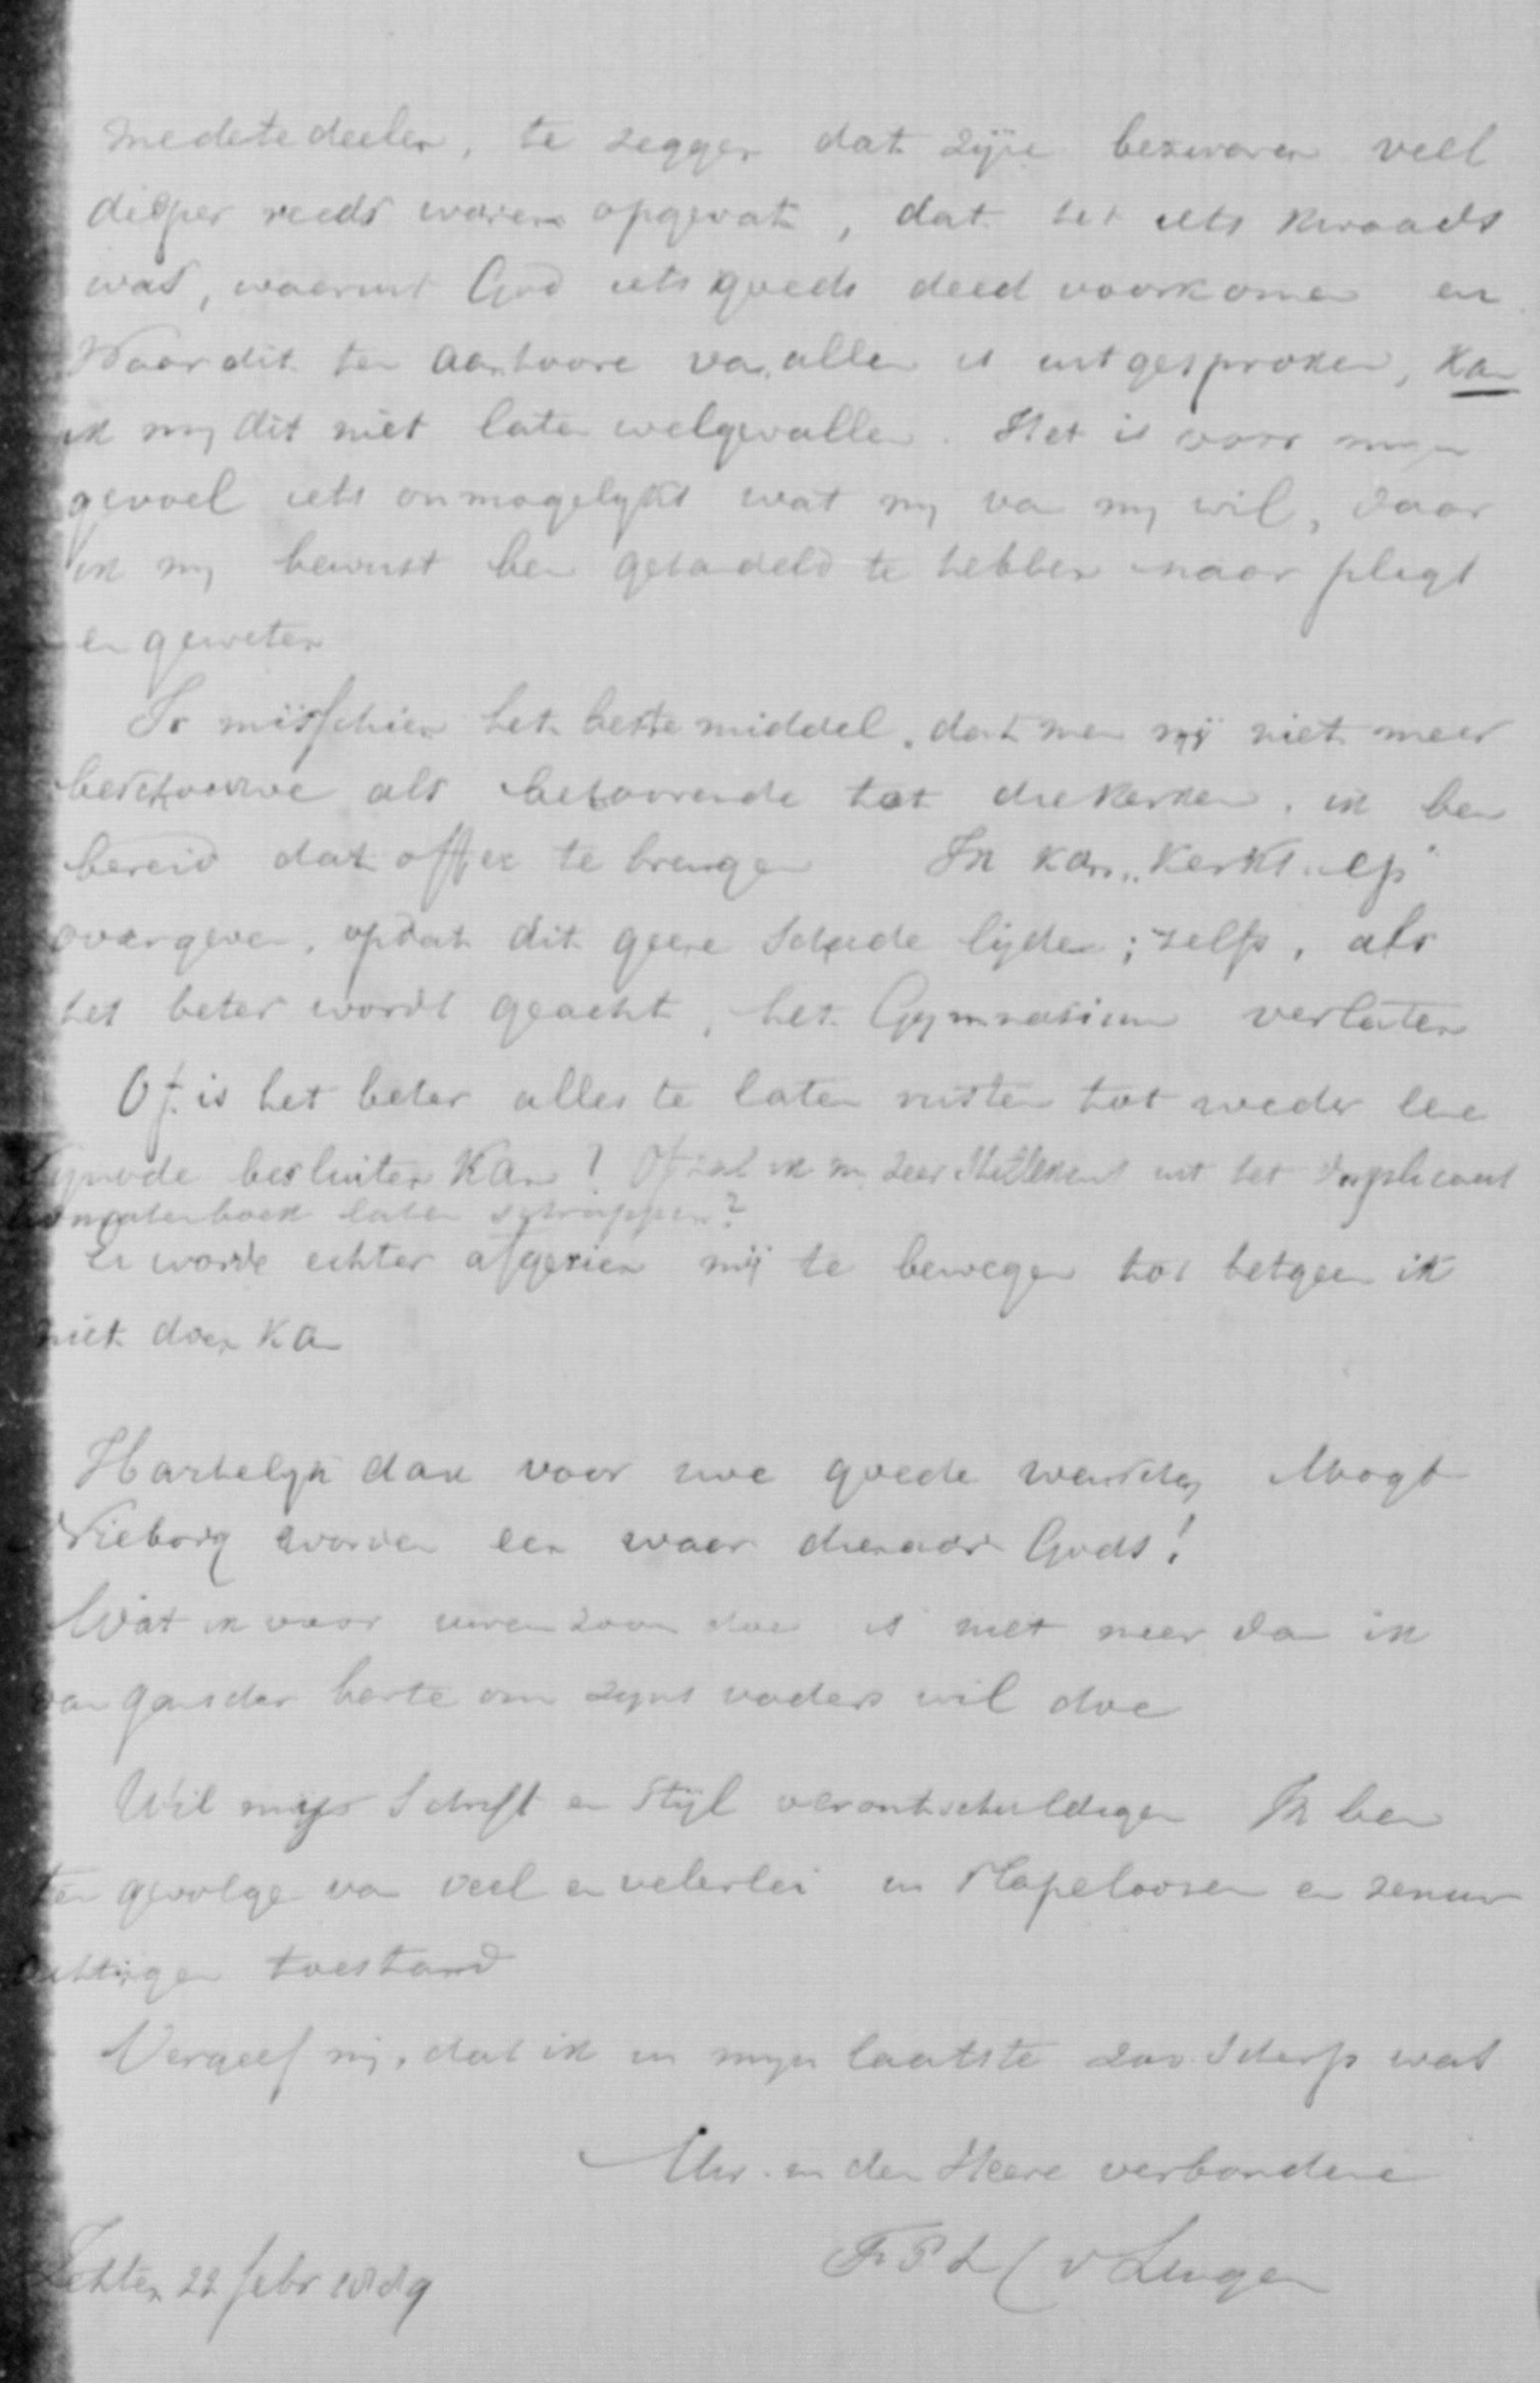 medetedeelen, te zeggen dat zijne bezwaren veel
dieper reeds waren opgevat, dat het iets kwaads
was, waaruit God iets goeds deed voorkomen en
Waar dit ten aanhoore van allen is uitgesproken, kan
ik mij dit niet laten welgevallen. Het is voor mijn
gevoel iets onmogelijks wat mij van mij wil, daar
ik mij bewust ben gehandeld te hebben naar pligt
en geweten
Is misschien het beste middel, dat men mij niet meer
beschouwe als behoorende tot die Kerken, ik ben
bereid dat offer te brengen Ik kan „Kerkl.
overgeven, opdat dit geene schade lijden; zelfs, als
het beter wordt geacht, het Gymnasium verlaten
Of is het beter alles te laten rusten tot weder eene
Synode besluiten kan! Of zal ik m uit het
laten schrappen?
Er worde echter afgezien mij te bewegen tot hetgeen ik
niet doen kan
Hartelijk dank voor uwe goede wenschen Moogt
Nieborg worden een waar dienaar Gods!
Wat ik voor uwen zoon doe is niet meer dan ik
van ganscher harte om zijns vaders wil doe
Wil mijn Schrift en Stijl verontschuldigen Ik ben
ten gevolge van veel en velerlei in slapeloozen en zenuw
achtigen toestand
Vergeef mij, dat ik in mijn laatste zoo scherp was
Uw in den Heere verbondene
F P L C v Lingen
Zetten 22 febr